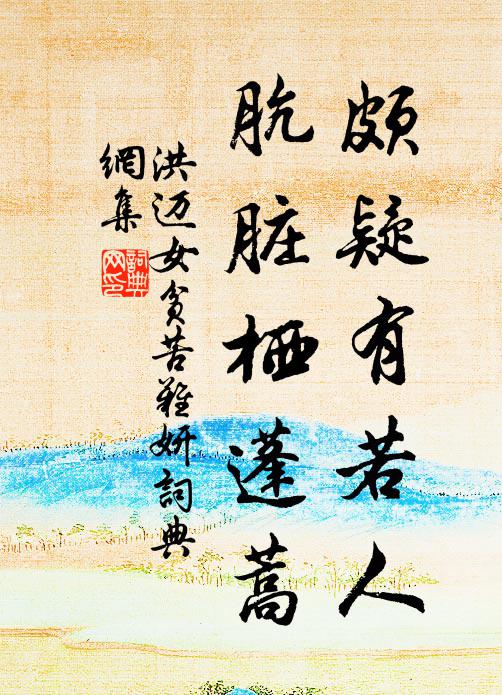 颇疑有若人
肮脏栖蓬蒿
洪迈女贫苦难妍詞典
網集
詞典
网印